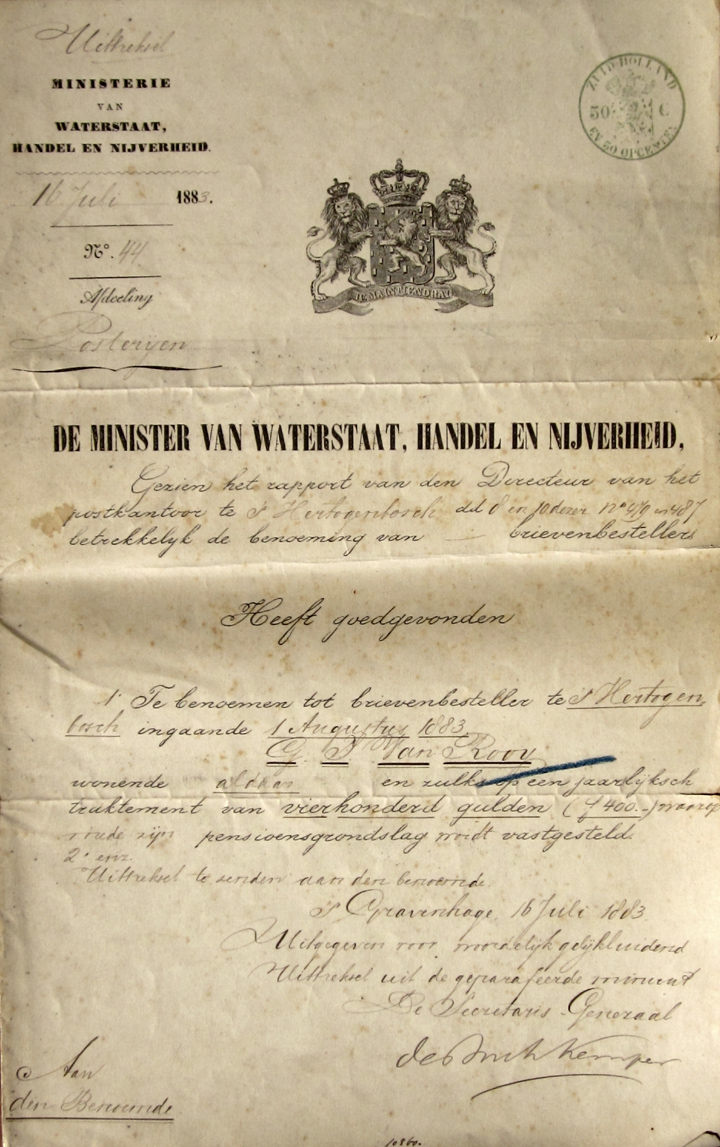 Uittreksel
MINISTERIE
VAN
WATERSTAAT,
HANDEL EN NIJVERHEID.
16 Juli 1883.
No. 44
Afdeeling
Posteryen
ZUID-HOLLAND
50 C
EN 50 OPCENTEN
JE MAINTIENDRAI
DE MINISTER VAN WATERSTAAT, HANDEL EN NIJVERHEID,
Gezien het rapport van den Directeur van het
postkantoor te 's Hertogenbosch dd 8 en 10 dezer No 470 en 487
betrekkelyk de benoeming van brievenbestellers
Heeft goedgevonden
1° Te benoemen tot brievenbesteller te 's Hertogen,
bosch ingaande 1 Augustus 1883
G. J. Van Rooy
wonende aldaar en zulks op een jaarlyksch
traktement van vierhonderd gulden (f 400.-) waarop
mede zyn pensioensgrondslag wordt vastgesteld.
2° enz.
Uittreksel te zenden aan den benoemde.
's Gravenhage, 16 Juli 1883
Uitgegeven voor woordelyk gelykluidend
Uittreksel uit de geparafeerde minuut
De Secretaris Generaal
de Bosch Kemper
Aan
den Benoemde